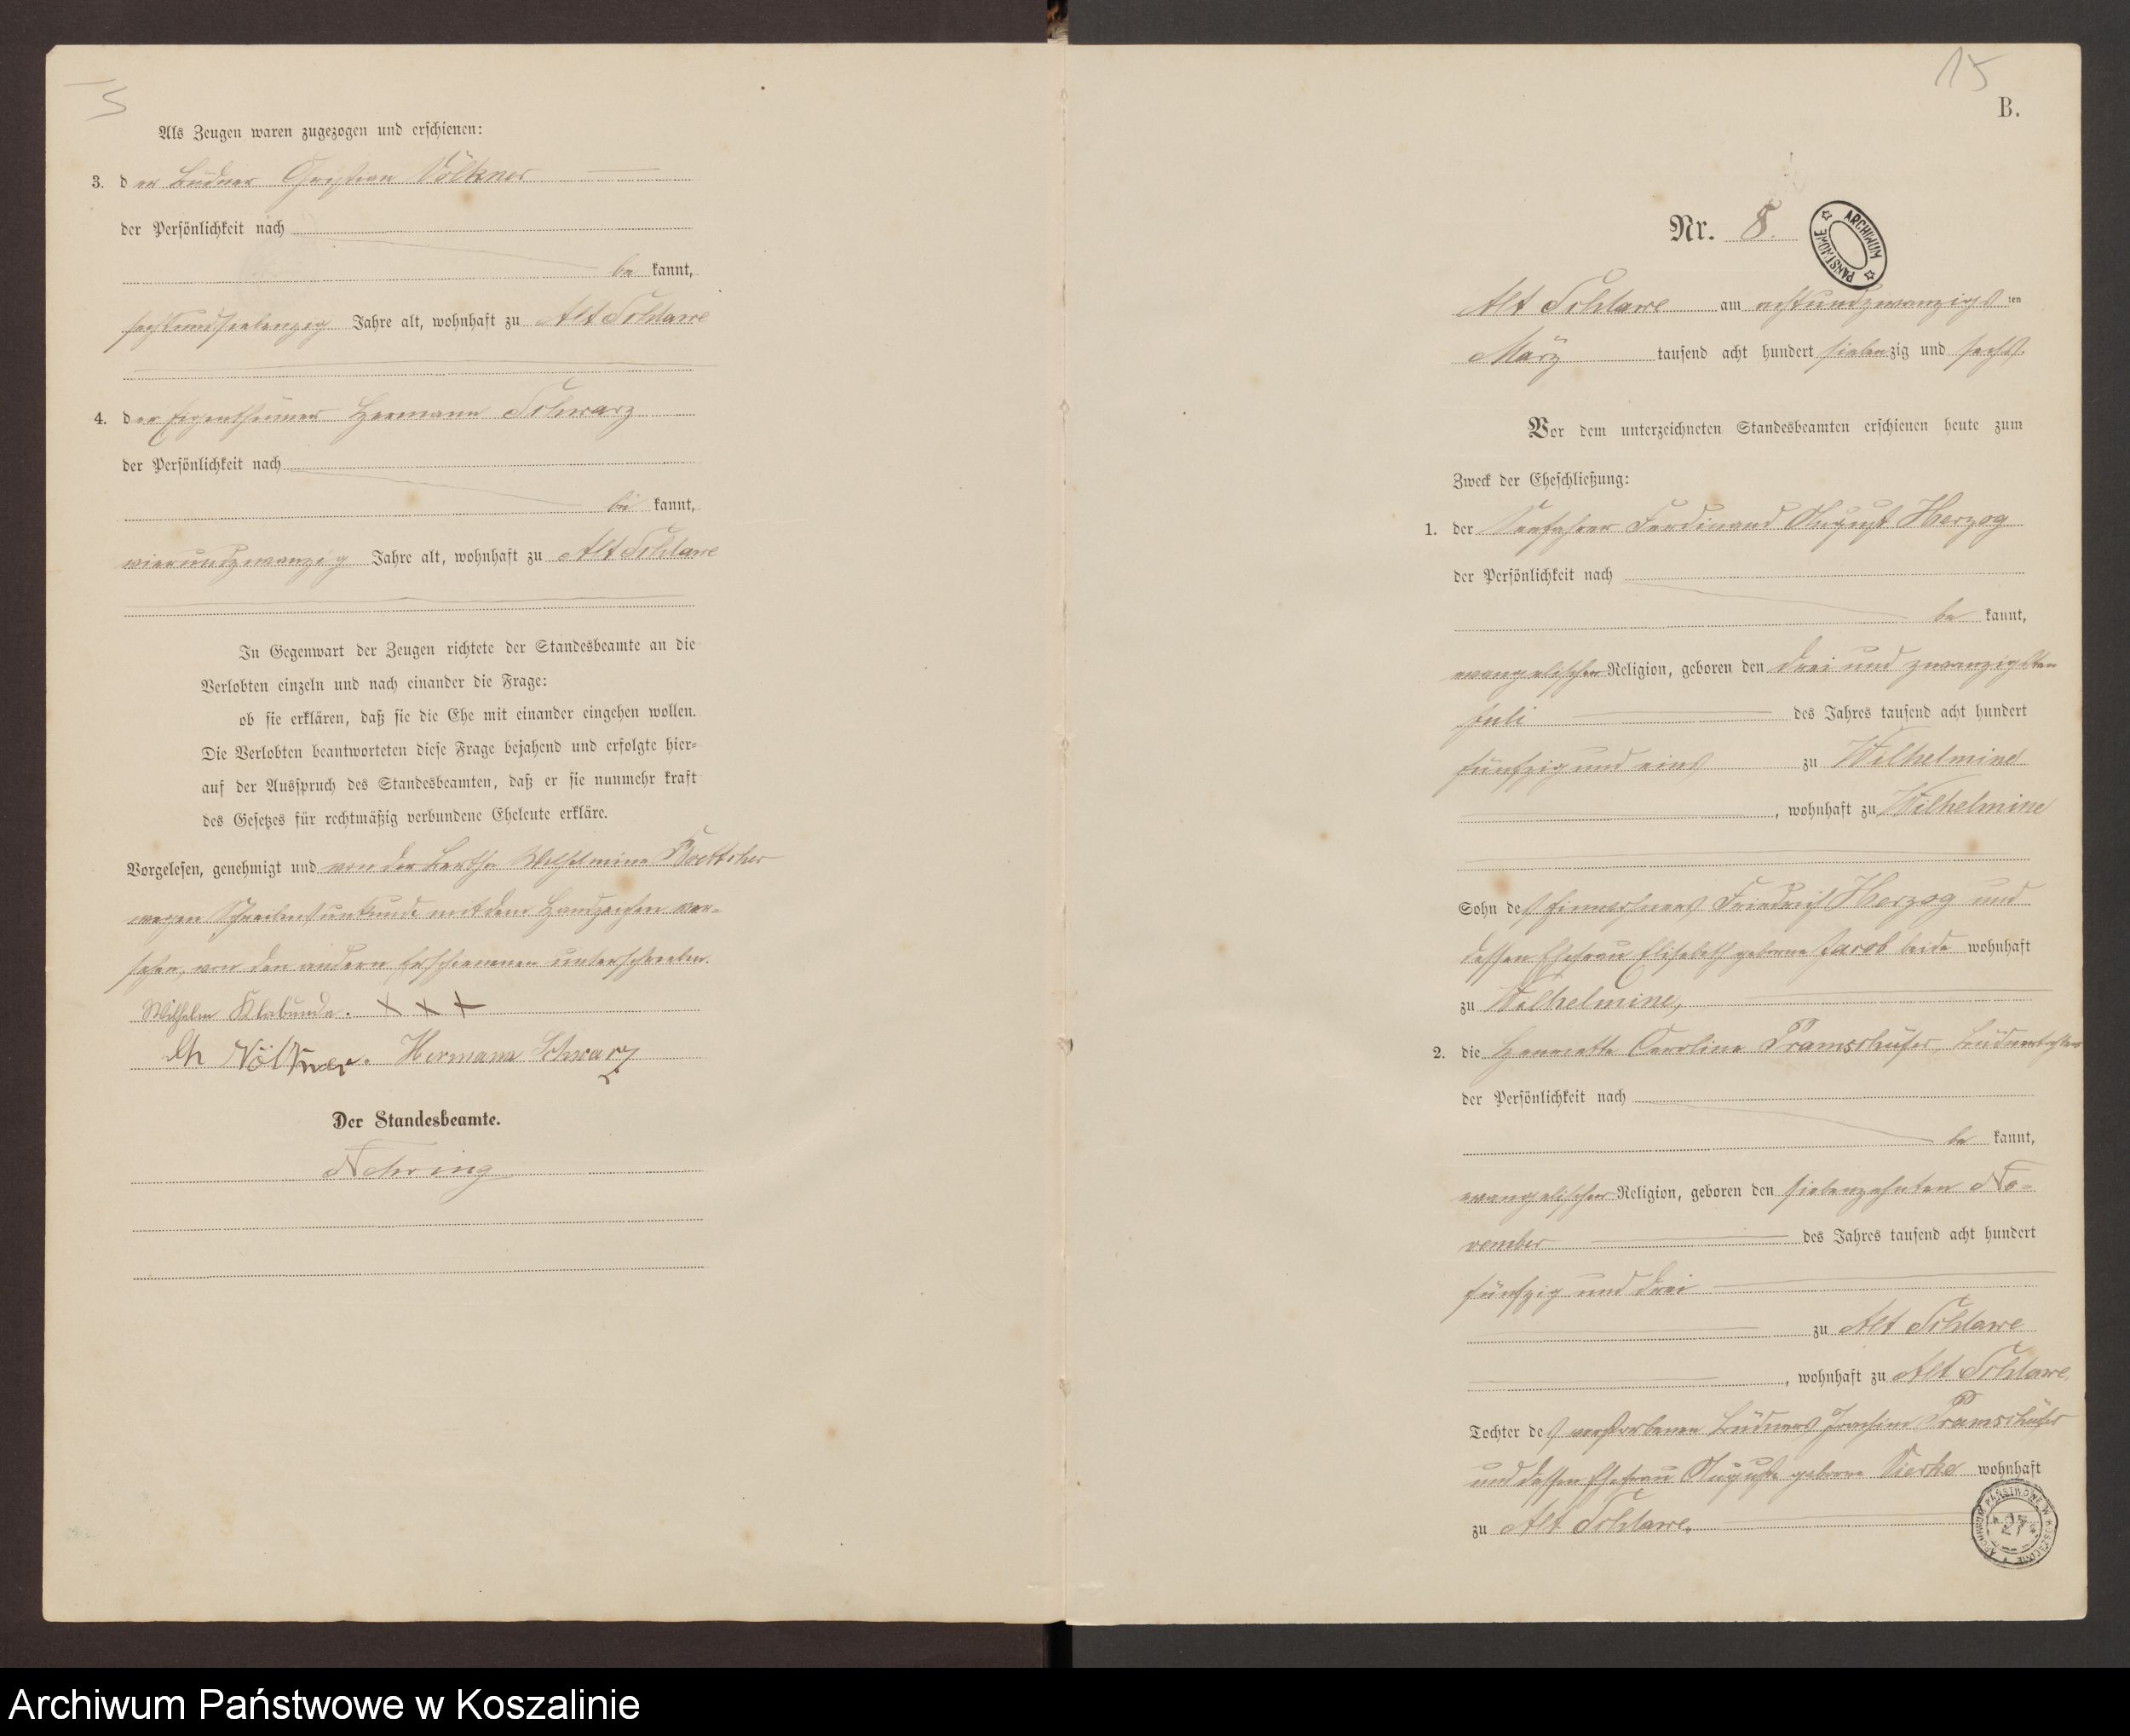 5
Als Zeugen waren zugezogen und erschienen:
3. der Büdner Christian Völkner
der Persönlichkeit nach
be kannt,
sechsundsiebenzig Jahre alt, wohnhaft zu Alt Schlawe
4. der Eigenthümer Hermann Schwarz
der Persönlichkeit nach
be kannt,
vierundzwanzig Jahre alt, wohnhaft zu Alt Schlawe
In Gegenwart der Zeugen richtete der Standesbeamte an die
Verlobten einzeln und nach einander die Frage:
ob sie erklären, daß sie die Ehe mit einander eingehen wollen.
Die Verlobten beantworteten diese Frage bejahend und erfolgte hier-
auf der Ausspruch des Standesbeamten, daß er sie nunmehr kraft
des Gesetzes für rechtmäßig verbundene Eheleute erkläre.
Vorgelesen, genehmigt und von der Bertha Wilhelmine Boettcher
wegen Schreibensunkunde mit dem Handzeichen ver-
sehen, von den andern Erschienenen unterschrieben.
Wilhelm Klabunde. X X X
Ch Völkner. Hermann Schwarz
Der Standesbeamte.
Nehring
15
B.
Nr. 8.
ARCHIWUM PAŃSTWOWE
Alt Schlawe am achtundzwanzigsten
März tausend acht hundert siebenzig und sechs.
Vor dem unterzeichneten Standesbeamten erschienen heute zum
Zweck der Eheschließung:
1. der Seefahrer Ferdinand August Herzog
der Persönlichkeit nach
be kannt,
evangelischer Religion, geboren den drei und zwanzigsten
Juli des Jahres tausend acht hundert
fünfzig und eins zu Wilhelmine
, wohnhaft zu Wilhelmine
Sohn des Einwohners Friedrich Herzog und
dessen Ehefrau Elisabeth geborne Jacob beide wohnhaft
zu Wilhelmine,
2. die Henriette Caroline Pramschüfer, Büdnertochter
der Persönlichkeit nach
be kannt,
evangelischer Religion, geboren den siebenzehnten No-
vember des Jahres tausend acht hundert
fünfzig und drei
zu Alt Schlawe
, wohnhaft zu Alt Schlawe,
Tochter des verstorbenen Büdners Joachim Pramschüfer
und dessen Ehefrau Auguste geborne Vierke wohnhaft
zu Alt Schlawe.
ARCHIWUM PAŃSTWOWE W KOSZALINIE
Archiwum Państwowe w Koszalinie